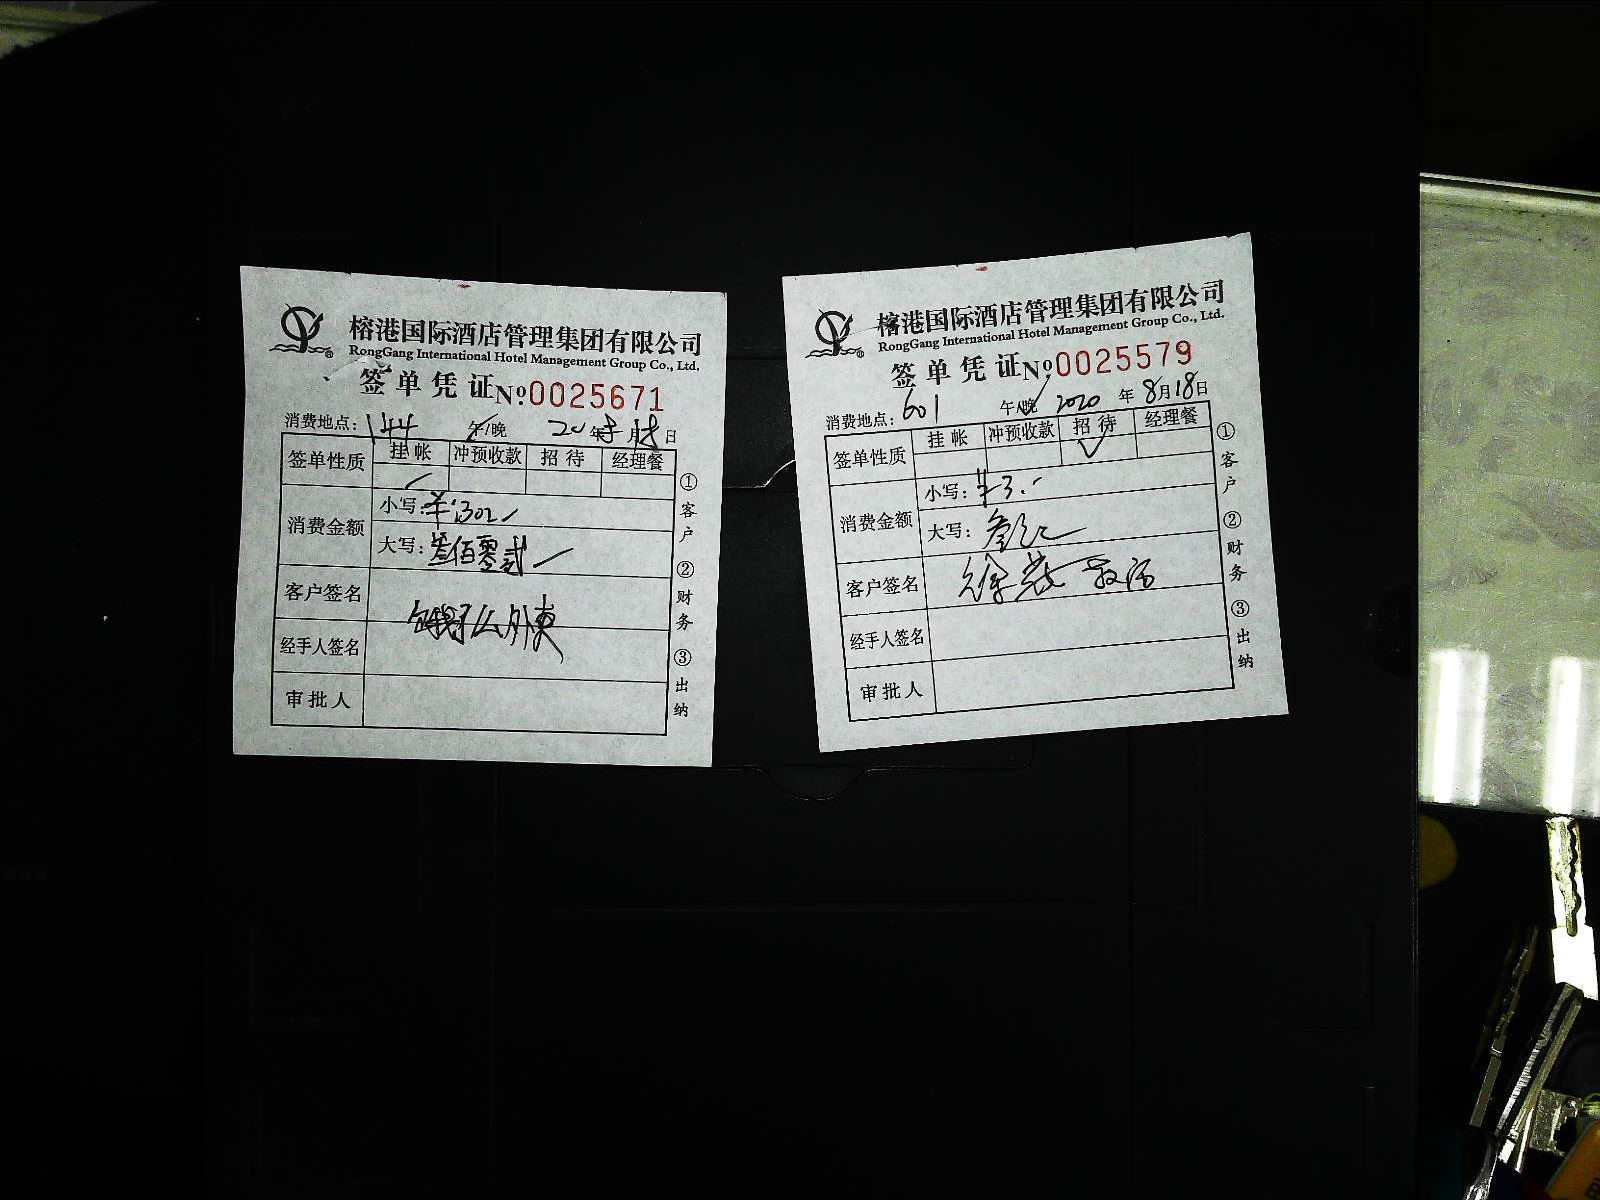 榕港国际酒店管理集团有限公司
RongGang International Hotel Management Group Co., Ltd.
签单凭证 №0025671
消费地点：144 午/晚 20年8月18日
签单性质 挂帐 冲预收款 招待 经理餐
消费金额 小写：¥:302
大写：叁佰零贰
客户签名 饿了么外卖
经手人签名
审批人
①客户 ②财务 ③出纳
榕港国际酒店管理集团有限公司
RongGang International Hotel Management Group Co., Ltd.
签单凭证 №0025579
消费地点：601 午/晚 2020年8月18日
签单性质 挂帐 冲预收款 招待 ✓ 经理餐
消费金额 小写：¥3.-
大写：叁元
客户签名 徐
经手人签名
审批人
①客户 ②财务 ③出纳